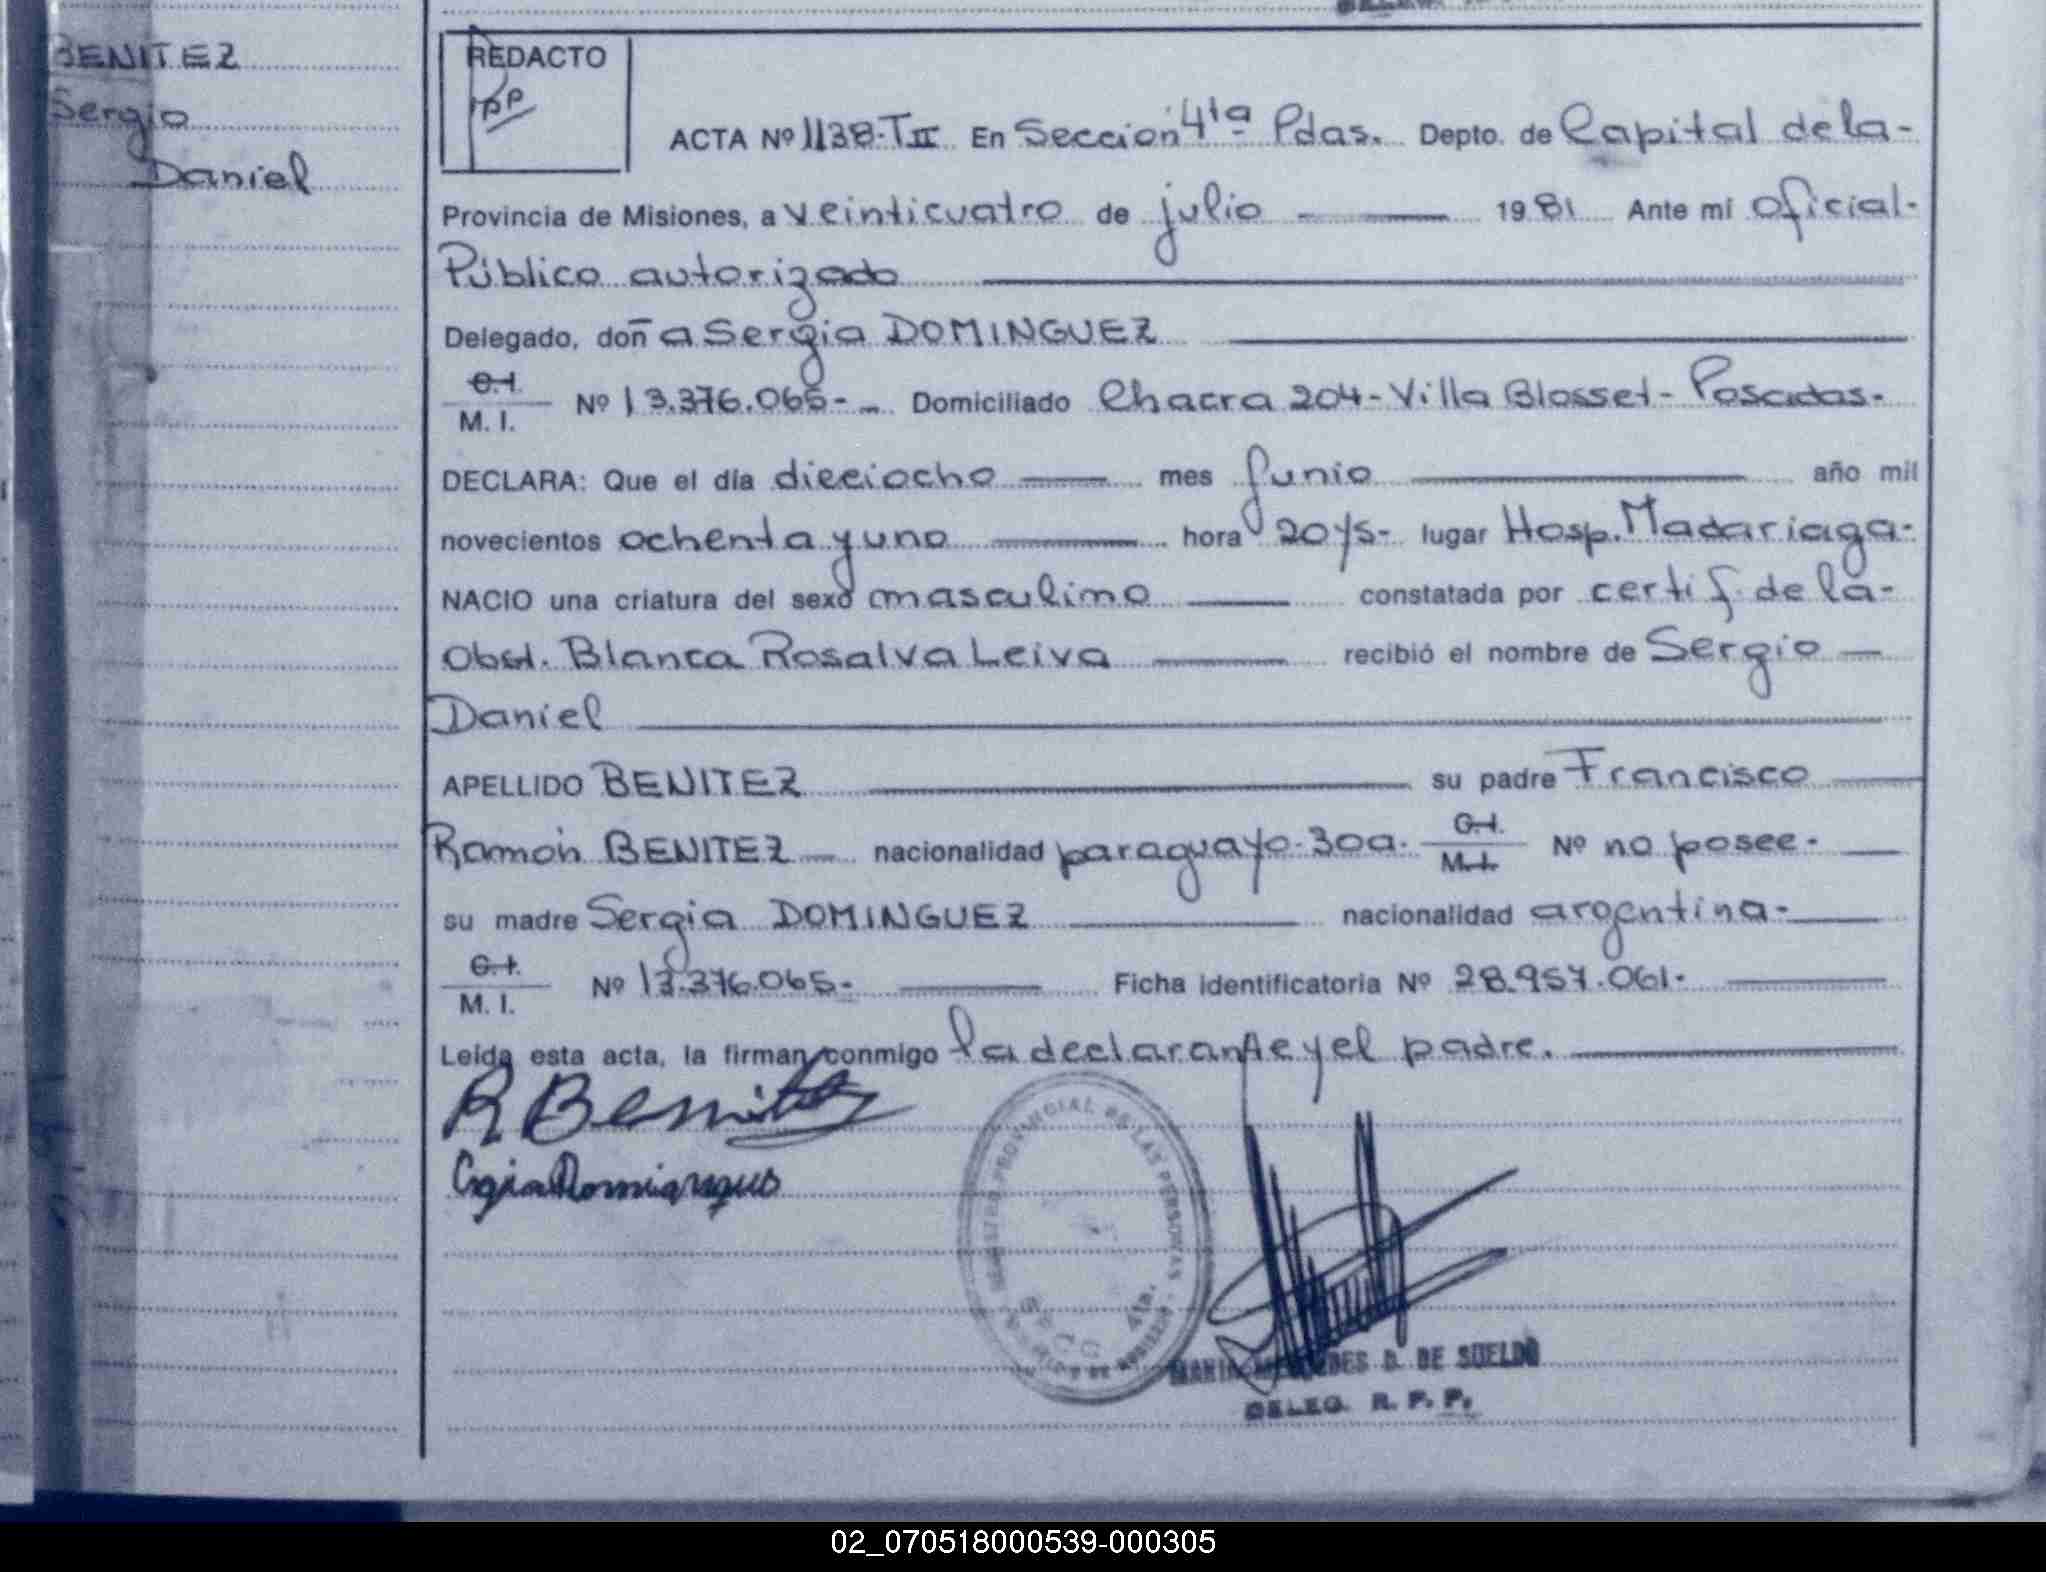 BENITEZ
Sergio
Daniel
REDACTO
ACTA Nº 1138-TII En Sección 4ta Pdas. Depto. de Capital de la-
Provincia de Misiones, a veinticuatro de julio 1981 Ante mi oficial-
Público autorizado
Delegado, doña Sergia DOMINGUEZ
C.I.
M. I. Nº 13.376.065- Domiciliado Chacra 204-Villa Blosset-Posadas.-
DECLARA: Que el día dieciocho mes Junio año mil
novecientos ochenta y uno hora 20 y 5- lugar Hosp. Madariaga-
NACIO una criatura del sexo masculino constatada por certif. de la-
Obst. Blanca Rosalva Leiva recibió el nombre de Sergio
Daniel
APELLIDO BENITEZ su padre Francisco
Ramón BENITEZ nacionalidad paraguayo-30a. C.I. M.I. Nº no posee-
su madre Sergia DOMINGUEZ nacionalidad argentina-
C.I.
M. I. Nº 13.376.065- Ficha identificatoria Nº 28.957.061-
Leída esta acta, la firman conmigo la declarante y el padre.
R Benitez
REGISTRO PROVINCIAL DE LAS PERSONAS
4ta.
MARIA MERCEDES D. DE SUELDO
DELEG. R. P. P.
02_070518000539-000305